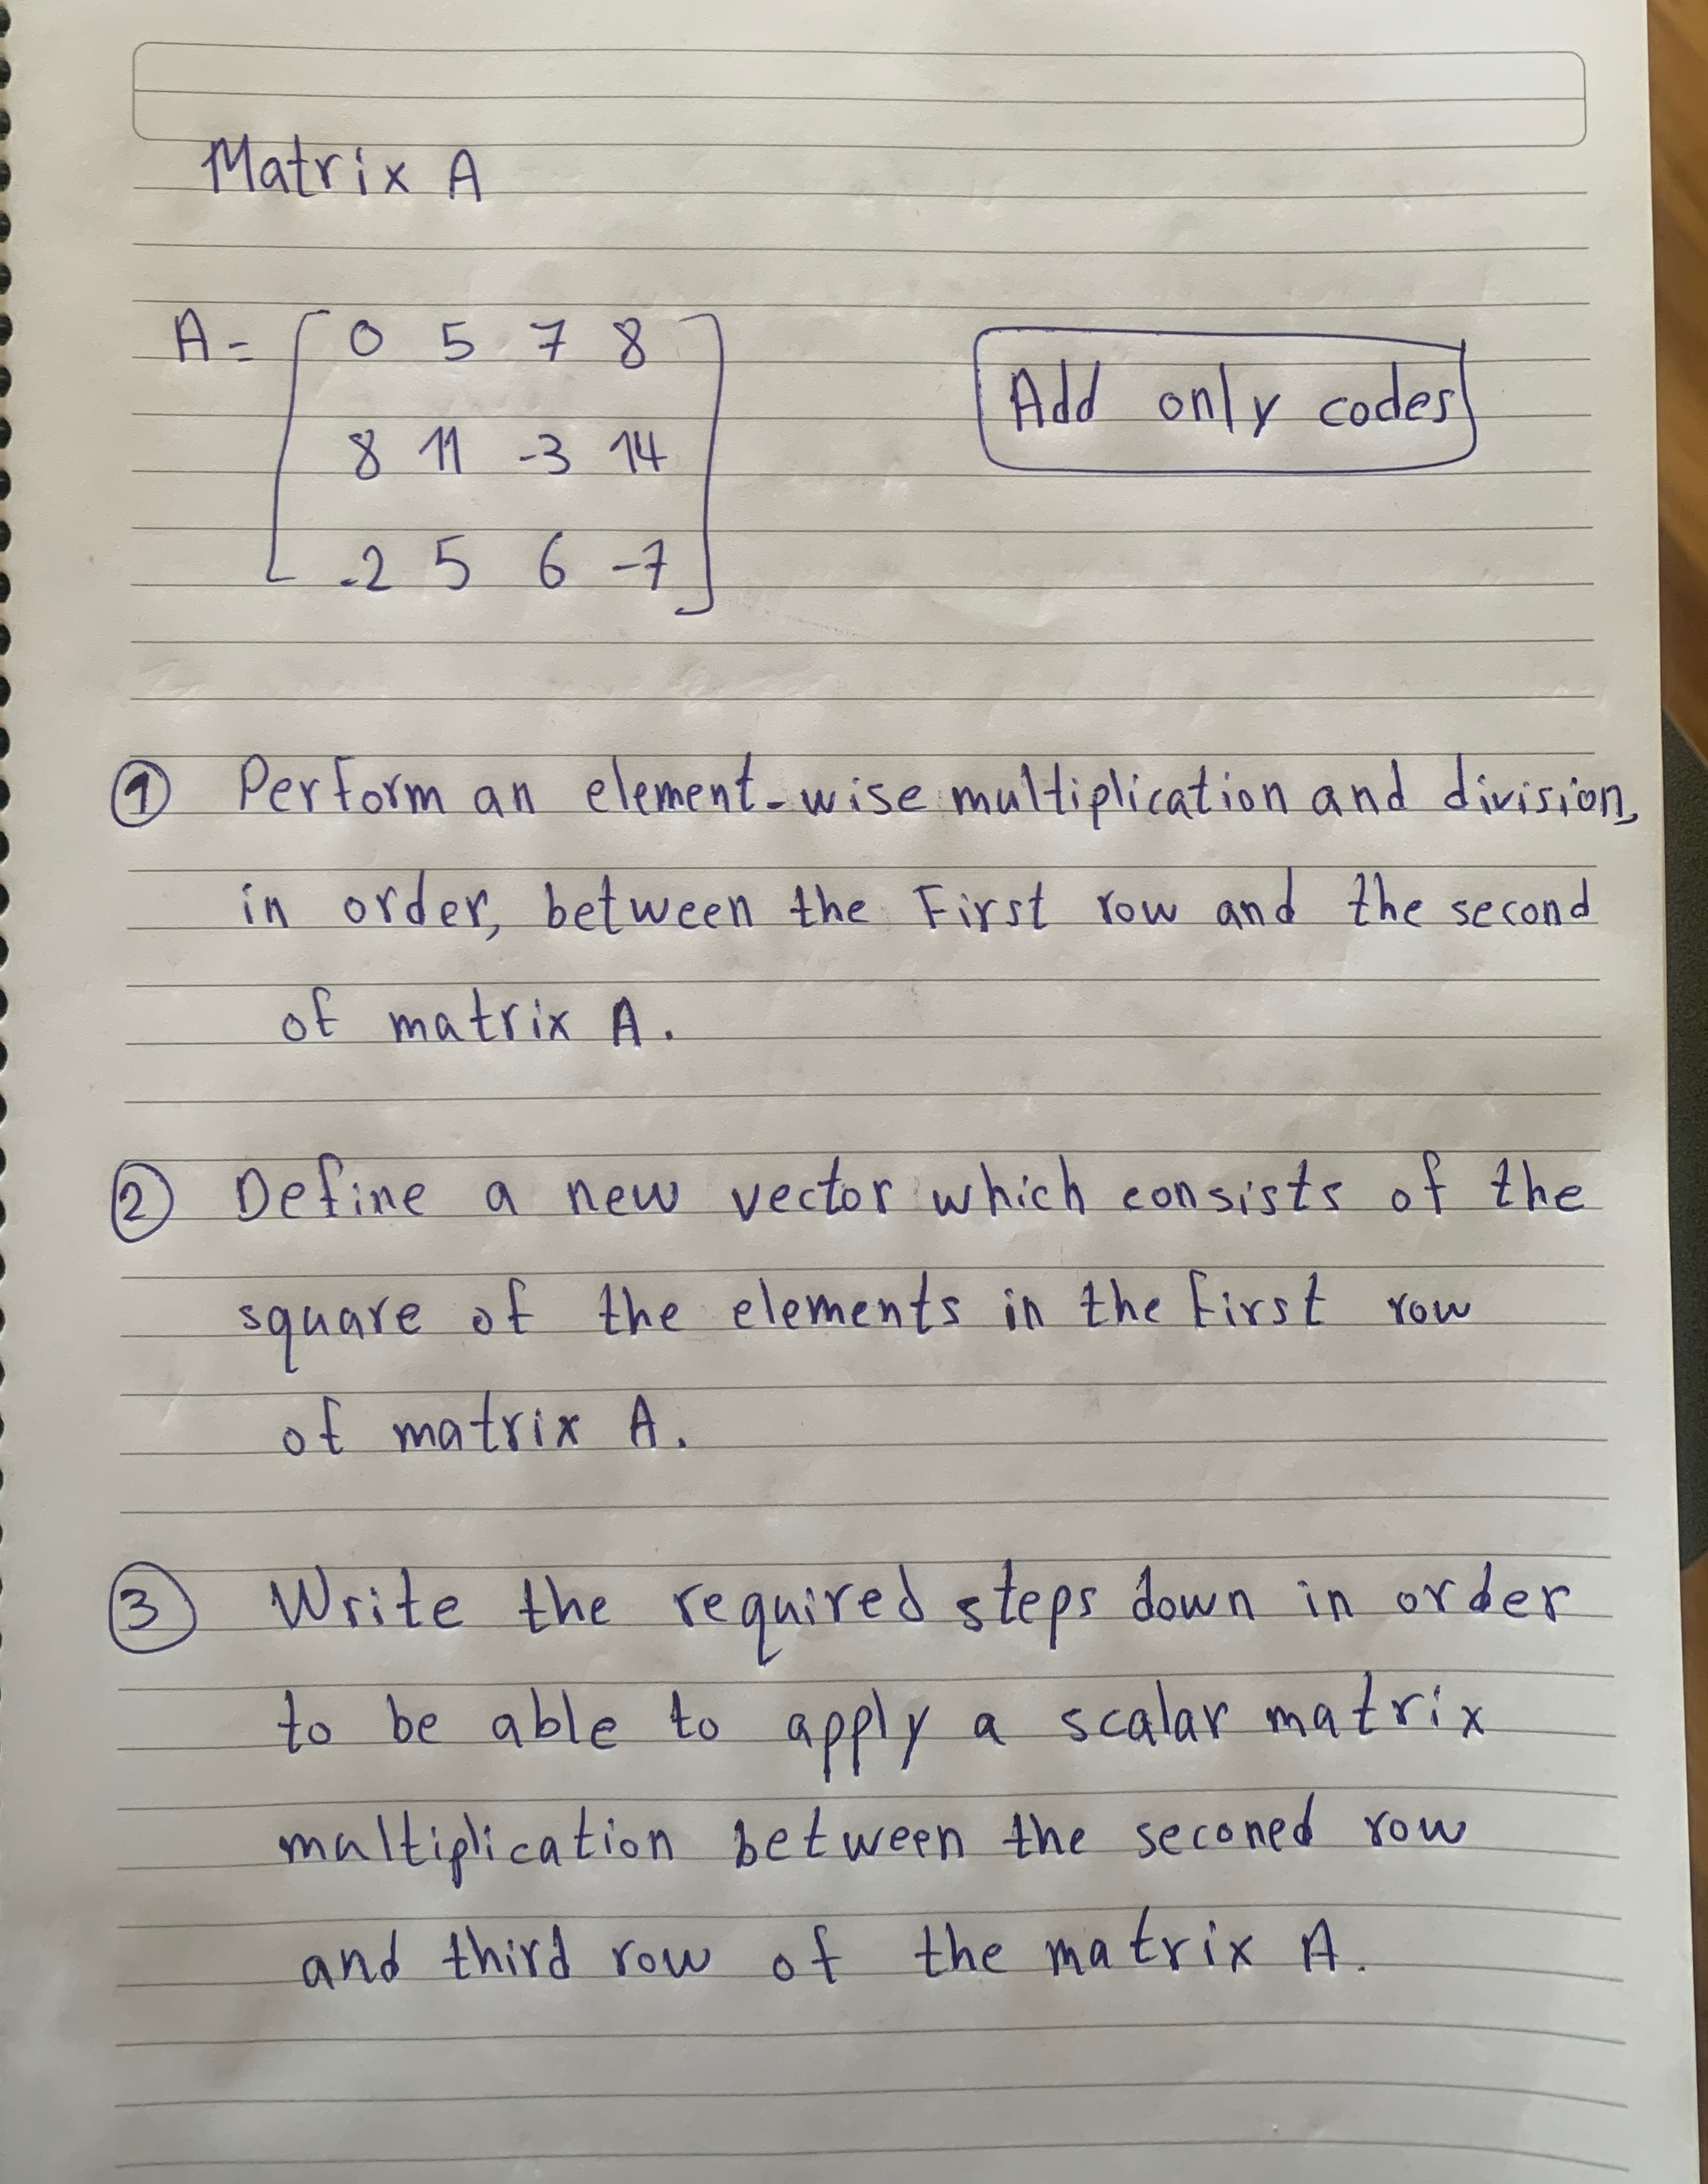 Matrix A
A = [ 0 5 7 8
8 11 -3 14
-2 5 6 -7 ]
Add only codes
① Perform an element-wise multiplication and division,
in order, between the First row and the second
of matrix A.
② Define a new vector which consists of the
square of the elements in the first row
of matrix A.
③ Write the required steps down in order
to be able to apply a scalar matrix
multiplication between the seconed row
and third row of the matrix A.